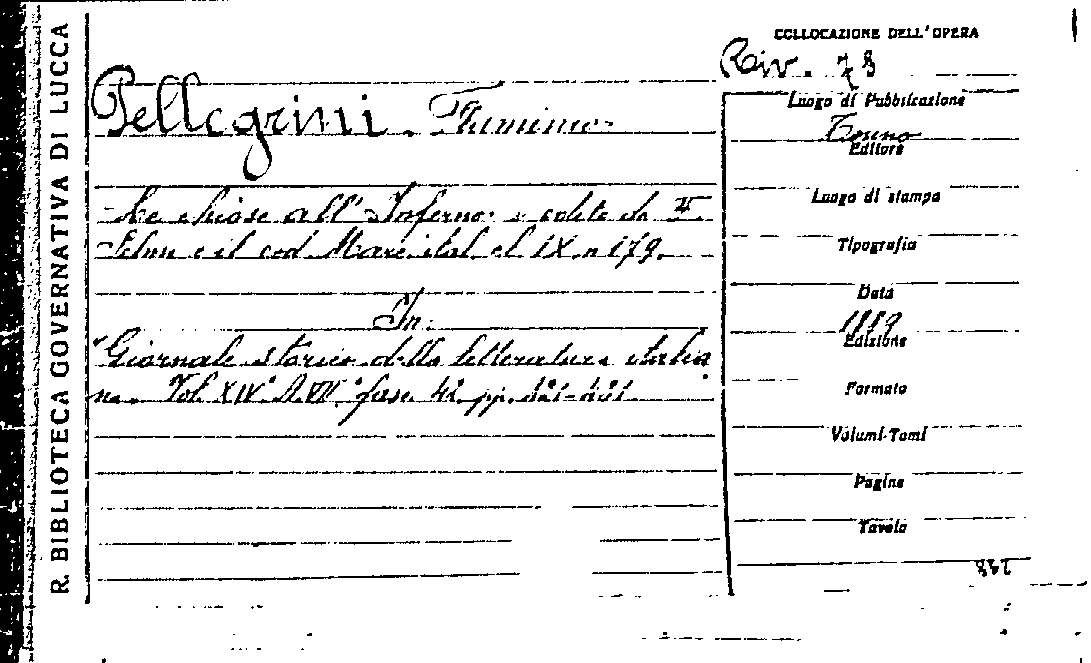 R. BIBLIOTECA GOVERNATIVA DI LUCCA
COLLOCAZIONE DELL'OPERA
Riv. 73
Pellegrini. Flaminio
Le chiose all'Inferno edite da F.
Selmi e il cod. Marc. ital. cl. IX. n 179.
In:
"Giornale storico della letteratura italia
na. Vol. XIV. A. VII. fasc. 42. pp.
Luogo di Pubblicazione
Torino
Editore
Luogo di stampa
Tipografia
Data
1889
Edizione
Formato
Volumi-Tomi
Pagine
Tavole